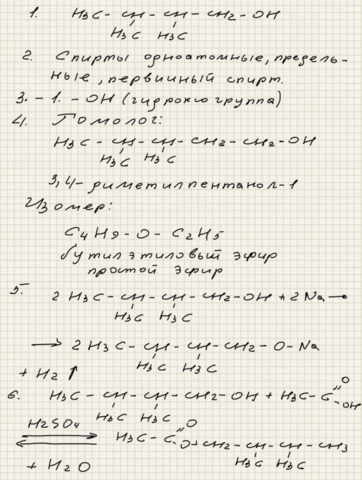 1. H3C - CH - CH - CH2 - OH
H3C H3C
2. Спирты одноатомные, предель-
ные, первичный спирт.
3. - 1. - OH (гидроксогруппа)
4. Гомолог:
H3C - CH - CH - CH2 - CH2 - OH
H3C H3C
3,4-диметилпентанол-1
Изомер:
C4H9 - O - C2H5
бутилэтиловый эфир
простой эфир
5. 2 H3C - CH - CH - CH2 - OH + 2 Na →
H3C H3C
→ 2 H3C - CH - CH - CH2 - O - Na
H3C H3C
+ H2 ↑
6. H3C - CH - CH - CH2 - OH + H3C - C O OH
H3C H3C
H2SO4 H3C - C O O - CH2 - CH - CH - CH3
H3C H3C
+ H2O